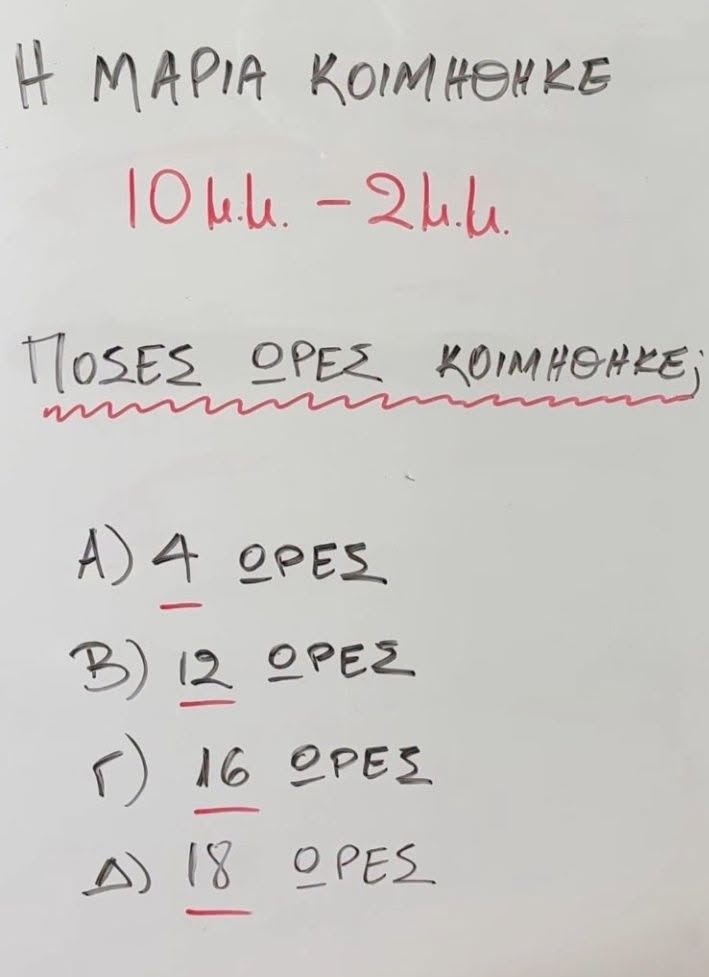 Η ΜΑΡΙΑ ΚΟΙΜΗΘΗΚΕ
10 μ.μ. - 2 μ.μ.
ΠΟΣΕΣ ΩΡΕΣ ΚΟΙΜΗΘΗΚΕ;
Α) 4 ΩΡΕΣ
Β) 12 ΩΡΕΣ
Γ) 16 ΩΡΕΣ
Δ) 18 ΩΡΕΣ